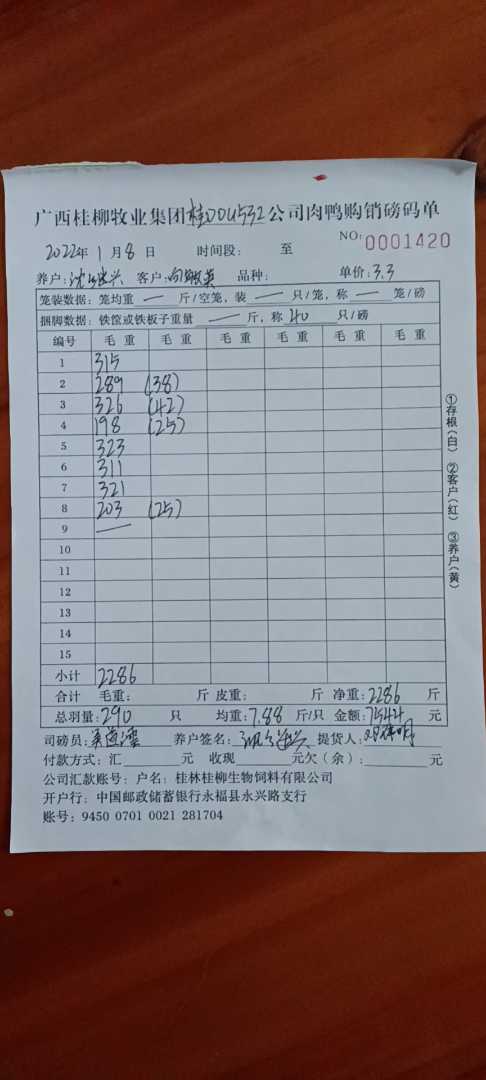 广西桂柳牧业集团桂D0U532公司肉鸭购销磅码单
NO: 0001420
2022年 1 月 8 日 时间段: 至
养户: 兴 客户: 向 英 品种: 单价: 3.3
笼装数据: 笼均重 — 斤/空笼, 装 — 只/笼, 称 — 笼/磅
捆脚数据: 铁筐或铁板子重量 — 斤, 称 40 只/磅
编号 毛 重 毛 重 毛 重 毛 重 毛 重 毛 重
1 315
2 289 (38)
3 326 (42)
4 198 (25)
5 323
6 311
7 321
8 203 (25)
9 —
10
11
12
13
14
15
小计 2286
合计 毛重: 斤 皮重: 斤 净重: 2286 斤
总羽量: 290 只 均重: 7.88 斤/只 金额: 7544 元
司磅员: 养户签名: 兴 提货人: 明
付款方式: 汇 元 收现 元欠(余): 元
公司汇款账号: 户名: 桂林桂柳生物饲料有限公司
开户行: 中国邮政储蓄银行永福县永兴路支行
账号: 9450 0701 0021 281704
①存根(白) ②客户(红) ③养户(黄)